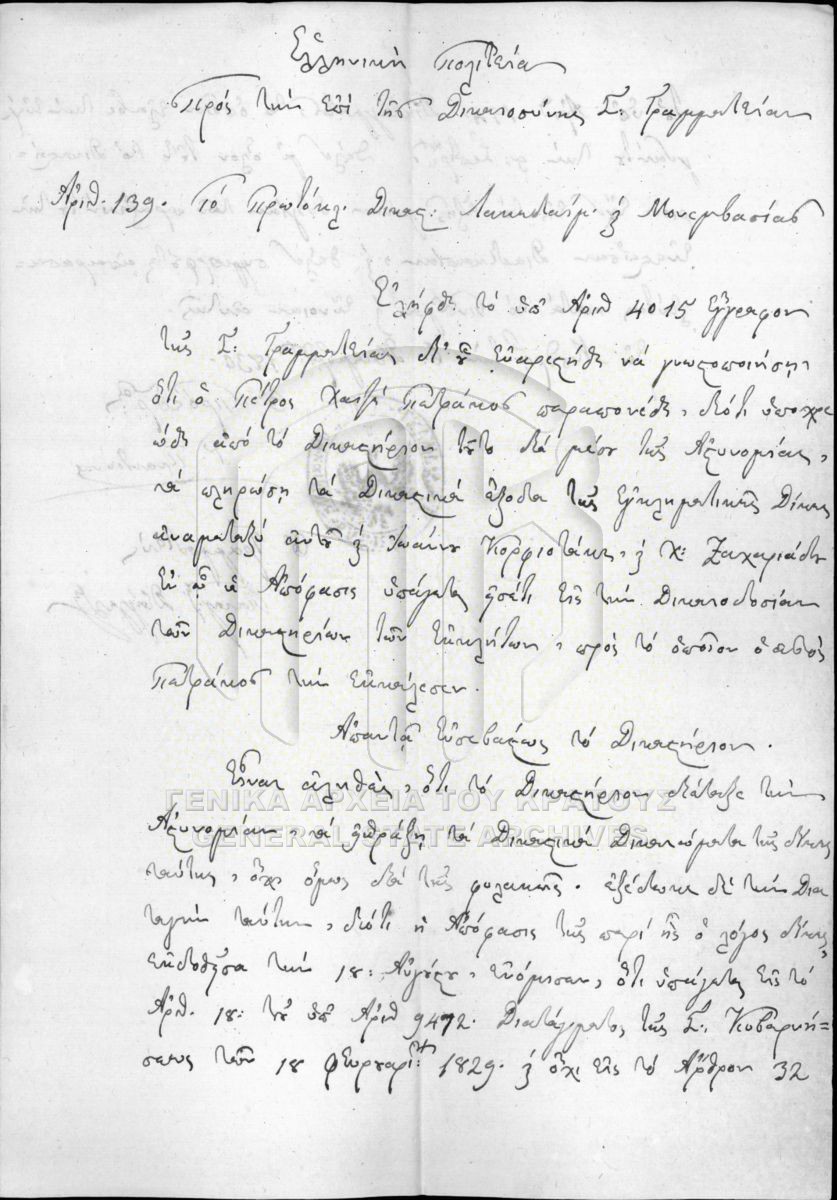 Ἑλληνικὴ Πολιτεία
Πρὸς τὴν ἐπὶ τῆς Δικαιοσύνης Γ. Γραμματείαν
Ἀριθ. 139. Τὸ Πρωτόκλ. Δικας. Λακεδαίμ. ἢ Μονεμβασίας
Ἐλήφθη τὸ ὑπ' Ἀριθ 4015 ἔγγραφον
τῆς Γ: Γραμματείας δι' οὗ εὐαρεστήθη νὰ γνωστοποιήσῃ,
ὅτι ὁ Πέτρος Χατζῆ Πατράκος παραπονέθη, διότι ὑποχρε
ώθη ἀπὸ τὸ Δικαστήριον τοῦτο διὰ μέσου τῆς Ἀστυνομίας,
νὰ πληρώσῃ τὰ Δικαστικὰ ἔξοδα τῆς Ἐγκληματικῆς Δίκης
ἀναμεταξὺ αὐτοῦ ἢ Ἰωάννου Κορφιοτάκη, ἢ Χ: Ζαχαριάδη
ἐν ᾧ ἡ Ἀπόφασις ὑπάγεται εἰς τὴν Δικαιοδοσίαν
τῶν Δικαστηρίων τῶν Ἐκκλήτων, πρὸς τὸ ὁποῖον ὁ
Πατράκος τὴν ἐκκάλεσεν.
Ἀπαντᾷ εὐσεβάστως τὸ Δικαστήριον.
Εἶναι ἀληθὲς, ὅτι τὸ Δικαστήριον διέταξε τὴν
Ἀστυνομίαν, νὰ εἰσπράξῃ τὰ Δικαστικὰ Δικαιώματα τῆς δίκης
ταύτης, ὄχι ὅμως διὰ τῆς φυλακῆς. ἐξέδωκε δὲ τὴν Δια
ταγὴν ταύτην, διότι ἡ Ἀπόφασις τῆς περὶ ἧς ὁ λόγος δίκης,
ἐκδοθεῖσα τὴν 18: Αὐγούστου, ἐνόμισεν, ὅτι ὑπάγεται εἰς τὸ
Ἀρθ. 18: τοῦ ὑπ' Ἀριθ 9472. Διατάγματος τῆς Γ: Κυβερνή=
σεως τῶν 18 Φευρουαρίου 1829. ἢ ὄχι εἰς τὸ Ἄρθρον 32
ΓΕΝΙΚΑ ΑΡΧΕΙΑ ΤΟΥ ΚΡΑΤΟΥΣ
GENERAL STATE ARCHIVES